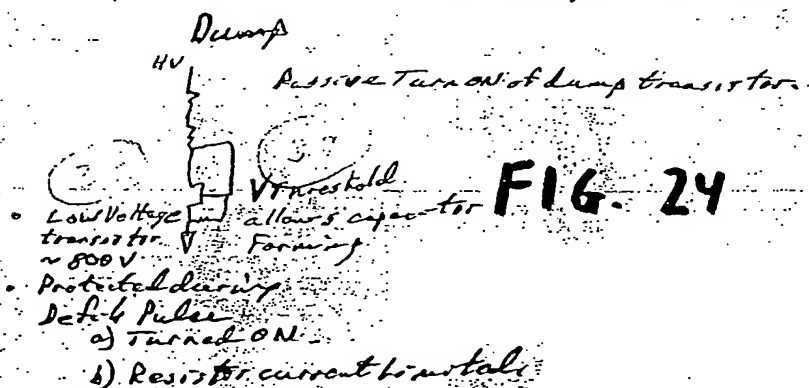 Dump
HV
Passive Turn ON of dump transistor.
VThreshold
allows capacitor
Forming
FIG. 24
• Low Voltage
transistor
~ 800 V
• Protected during
Defib Pulse
a) Turned ON
b) Resistor current